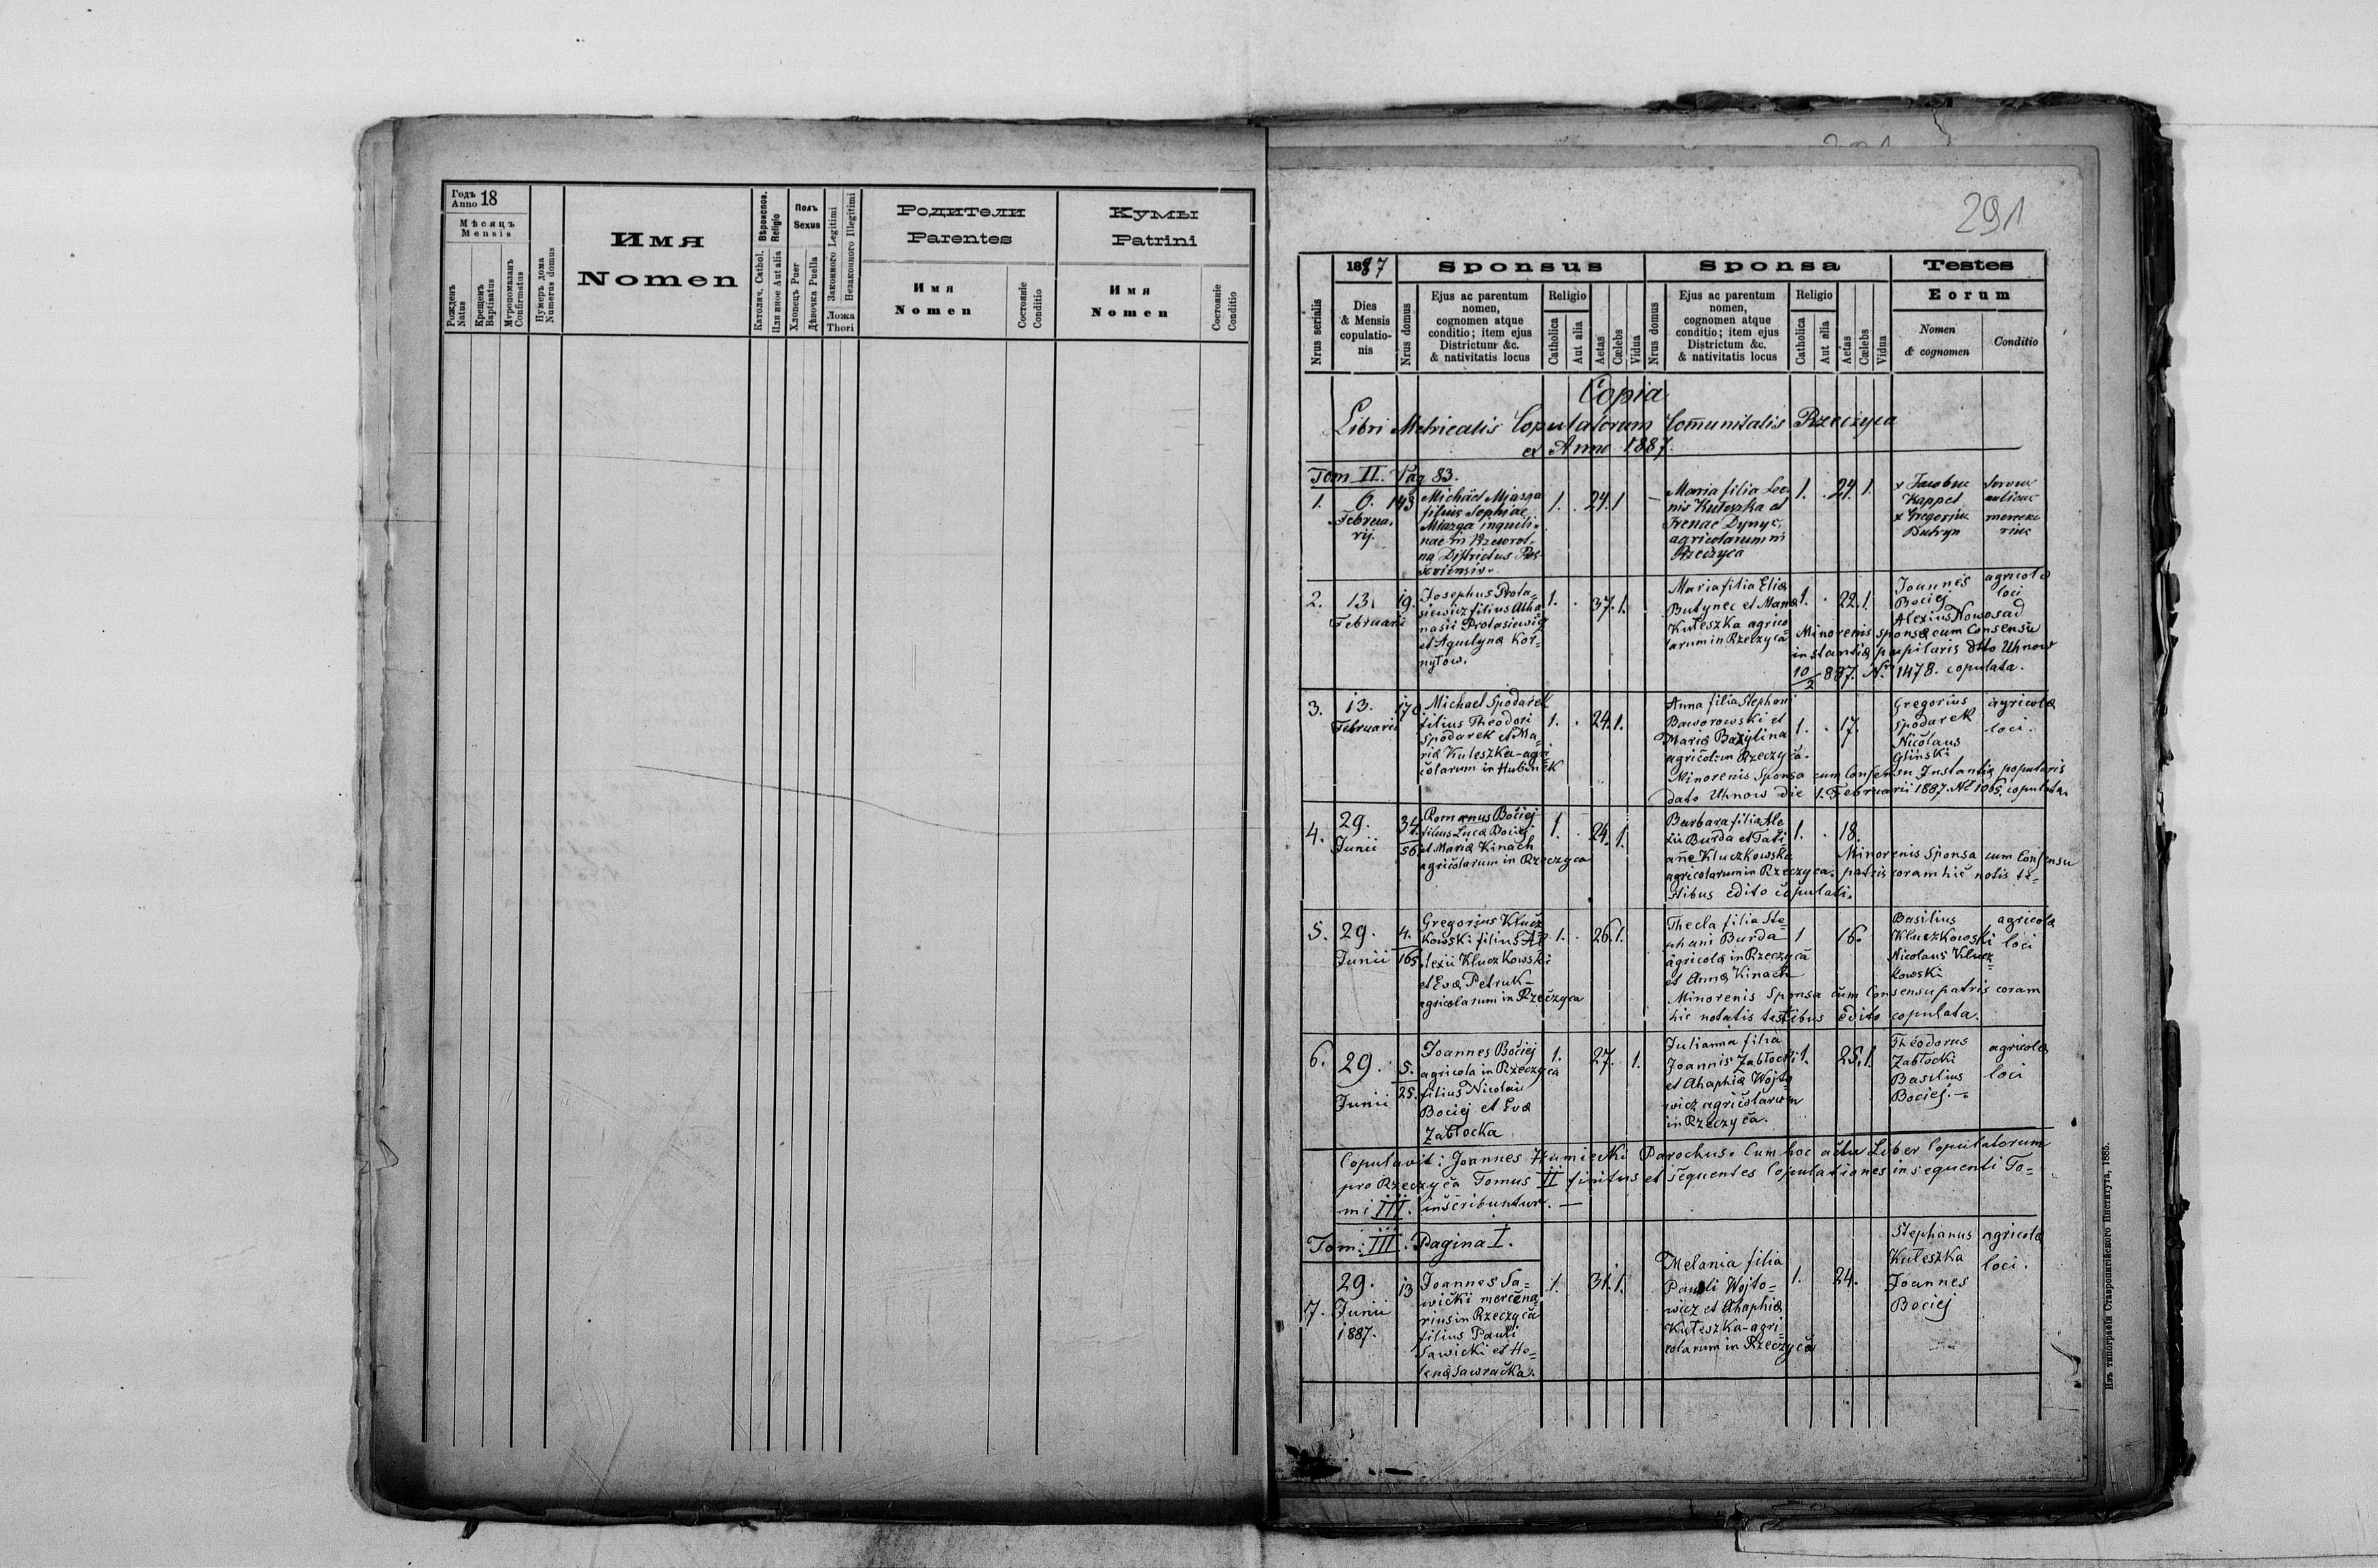 Годъ 18
Anno
Мѣсяцъ
Mensis
Рожденъ
Natus
Крещенъ
Baptisatus
Мѵропомазанъ
Confirmatus
Нумеръ дома
Numerus domus
Имя
Nomen
Вѣроиспов.
Religio
Католич. Cathol.
Или иное Aut alia
Полъ
Sexus
Хлопецъ Puer
Дѣвочка Puella
Законного Legitimi
Незаконного Illegitimi
Ложа
Thori
Родители
Parentes
Имя
Nomen
Состояніе
Conditio
Кумы
Patrini
Имя
Nomen
Состояніе
Conditio
291
Nrus serialis
1887
Dies
& Mensis
copulatio-
nis
Sponsus
Nrus domus
Ejus ac parentum
nomen,
cognomen atque
conditio; item ejus
Districtum &c.
& nativitatis locus
Religio
Catholica
Aut alia
Aetas
Cælebs
Vidua
Sponsa
Nrus domus
Ejus ac parentum
nomen,
cognomen atque
conditio; item ejus
Districtum &c.
& nativitatis locus
Religio
Catholica
Aut alia
Aetas
Cælebs
Vidua
Testes
Eorum
Nomen
& cognomen
Conditio
Copia
Libri Metricalis Copulatorum Comunitatis Rzeczyca
ex Anno 1887.
Tom II. Pag 83.
1. 6. Februarij. 143
Michael Miasga
filius Sophiae
Miazga inquili-
nae in
na Districtus
1. 24. 1
Maria filia Leo-
nis Kuleszka et
Irenae Dynyc,
agricolarum in
Rzeczyca
1. 24. 1.
x Jacobus
Kappel
x Gregorius
Dutryn
2. 13. Februarii 19.
Josephus Prota-
siewicz filius Atha
nasii Protasiewicz
et Aquilynæ Kor-
nyłow.
1. 37. 1.
Maria filia Eliæ
Butynec et Mariæ
Kuleszka agrico
larum in Rzeczyca
1. 22. 1.
Joannes agricolæ
Bociej loci
Alexius Nowosad
Minorenis sponsa cum Consensu
instantiæ pupilaris dtto Uhnow
10/2 887. Nr. 1478. copulata.
3. 13. Februarii 170.
Michael Spodarek
filius Theodori
Spodarek et Ma-
riæ Kuleszka-agri
colarum in Hubinek
1. 24. 1.
Anna filia Stephani
Baworowski et
Mariæ Bazylina
agricol: in Rzeczyca.
1. 17.
Gregorius agricolæ
Spodarek loci.
Nicolaus
Gliński
Minorenis Sponsa cum Consensu Instantiæ popularis
dato Uhnow die 1. Februarii 1887. Nr 1065. copulata.
4. 29. Junii 34. 56
Romanus Bociej
filius Lucæ Bociej
et Mariæ Kinach
agricolarum in Rzeczyca
1. 24. 1.
Barbara filia Ale
xii Burda et Tati
anæ Kluczkowska
agricolarum in Rzeczyca.
1. 18.
Minorenis Sponsa cum Consensu
patris coram hic notis te-
stibus edito copulati.
5. 29. Junii 4. 165.
Gregorius Klucz
kowski filius Al
lexii Kluczkowski
et Evæ Petruk-
agricolarum in Rzeczyca
1. 26. 1.
Thecla filia Ste-
phani Burda
agricolæ in Rzeczyca
et Annæ Kinach
1 16.
Basilius agricolæ
Kluczkowski loci
Nicolaus Klucz-
kowski
Minorenis Sponsa cum Consensu patris coram
hic notatis testibus edito copulata.
6. 29. Junii 5. 25.
Joannes Bociej
agricola in Rzeczyca
filius Nicolai
Bociej et Evæ
Zabłocka
1. 27. 1.
Julianna filia
Joannis Zabłocki
et Ahaphiæ Wojto
wicz agricolarum
in Rzeczyca.
1. 25. 1.
Theodorus agricolæ
Zabłocki loci
Basilius
Bociej.
Copulavit: Joannes Humiecki Parochus. Cum hoc actu Liber Copulatorum
pro Rzeczyca Tomus II finitus et sequentes Copulationes in sequenti To-
mi III. inscribuntur. —
Tom: III. Pagina I.
7. 29. Junii 1887. 13
Joannes Sa-
wicki mercena
rius in Rzeczyca
filius Pauli
Sawicki et He-
lenæ Sawracka.
1. 31. 1.
Melania filia
Pauli Wojto-
wicz et Ahaphiæ
Kuleszka-agri-
colarum in Rzeczyca
1. 24.
Stephanus agricolæ
Kuleszka loci.
Joannes
Bociej
Изъ типографіи Ставропигійского Института, 1885.